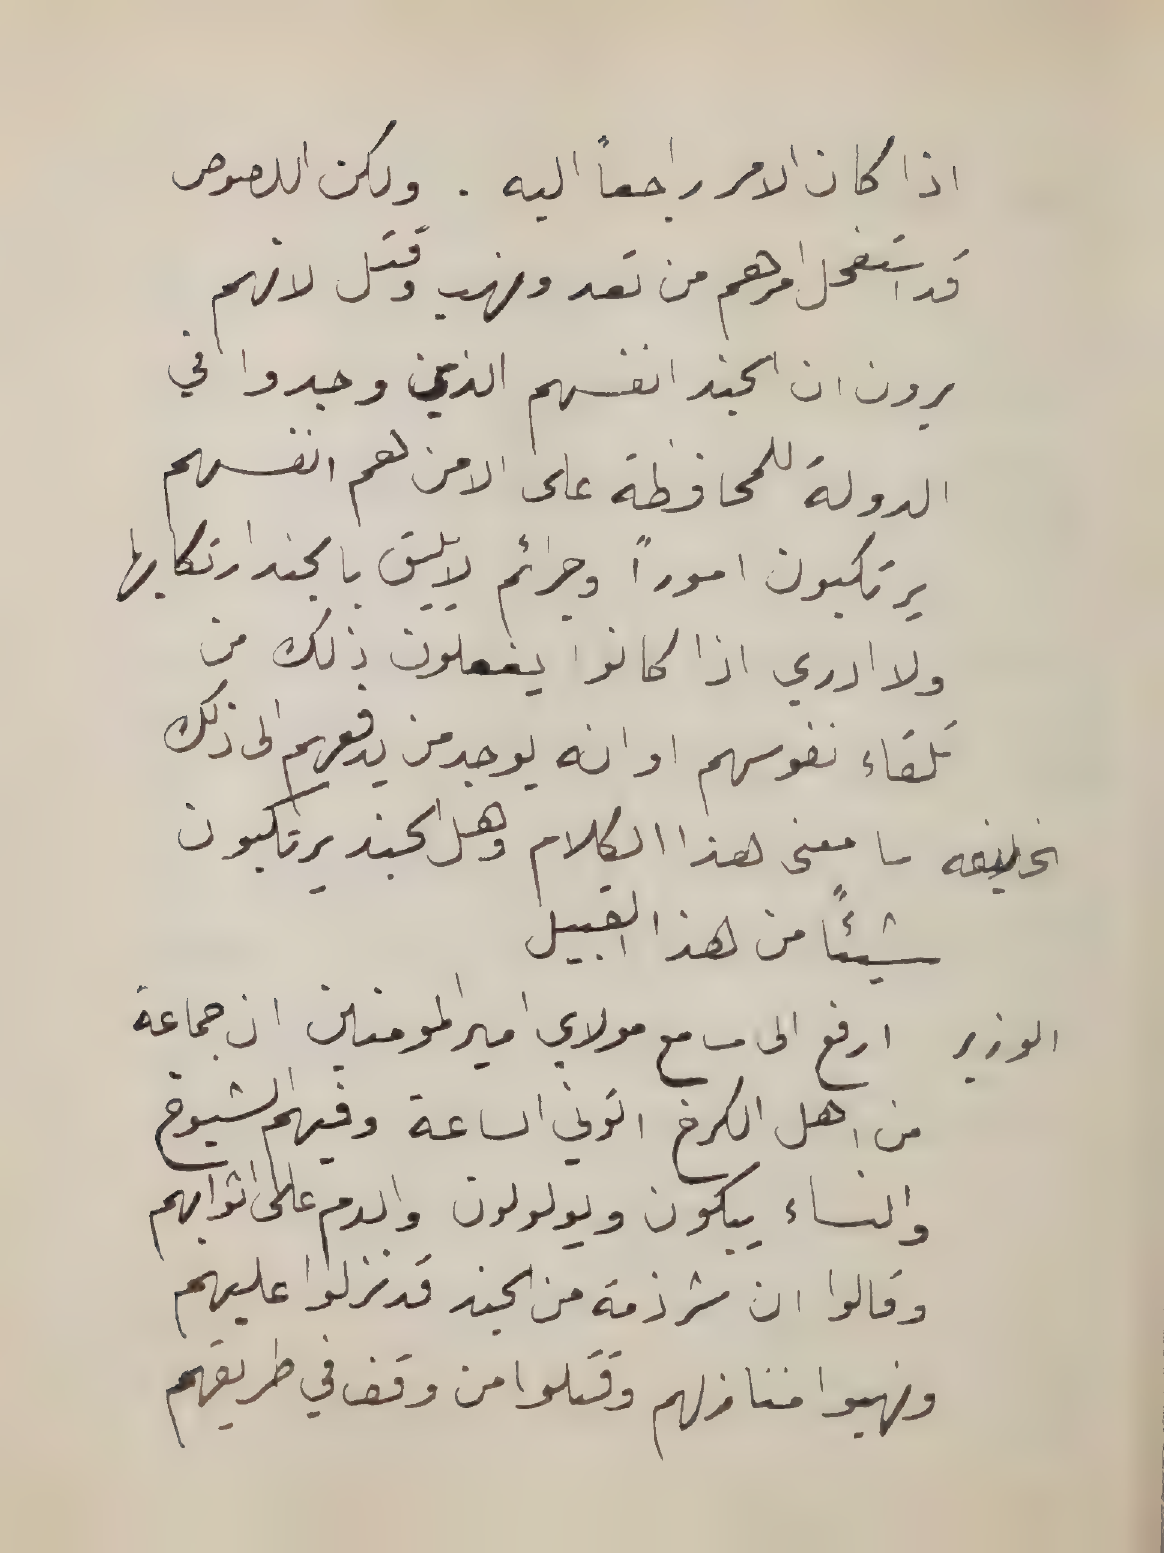 اذا كان الامر راجعاً اليه . ولكن اللصوص
قد استفحل امرهم من تعد ونهب وقتل لانهم
يرون ان الجند انفسهم الذين وجدوا في
الدولة للمحافظة على الامن هم انفسهم
يرتكبون اموراً وجرائم لا يليق بالجند ارتكابها
ولا ادري اذا كانوا يفعلون ذلك من
تلقاء نفوسهم او انه يوجد من يدفعهم الى ذلك
الخليفه ما معنى هذا الكلام وهل الجند يرتكبون
شيئاً من هذا القبيل
الوزير ارفع الى مسامع مولاي امير المومنين ان جماعة
من اهل الكرخ اتوني الساعة وفيهم الشيوخ
والنساء يبكون ويولولون والدم على اثوابهم
وقالوا ان شرذمة من الجند قد نزلوا عليهم
ونهبوا منازلهم وقتلوا من وقف في طريقهم